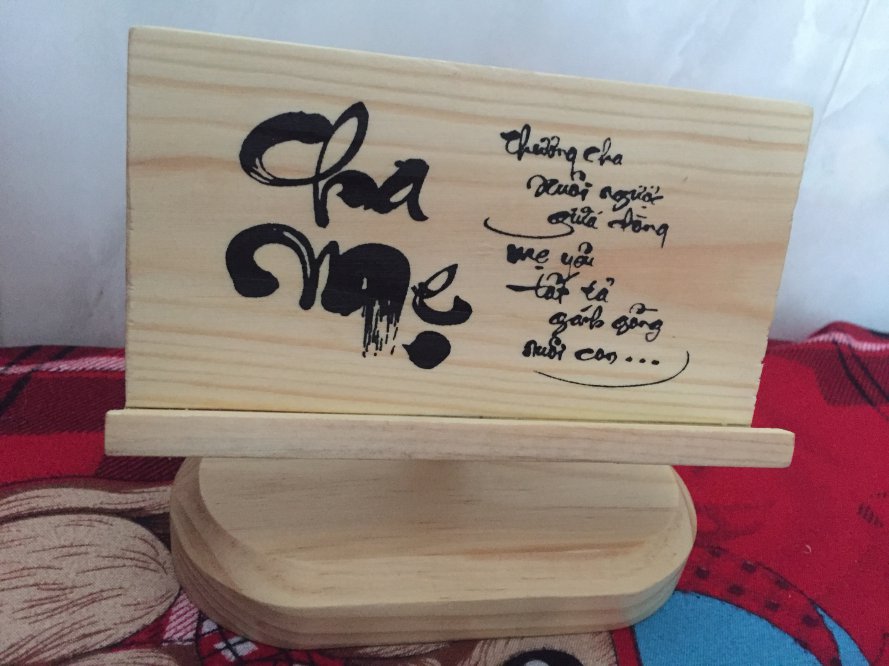 Cha
Mẹ
Thương cha
xuôi ngược
giữa dòng
mẹ yêu
tất tả
gánh gồng
nuôi con...